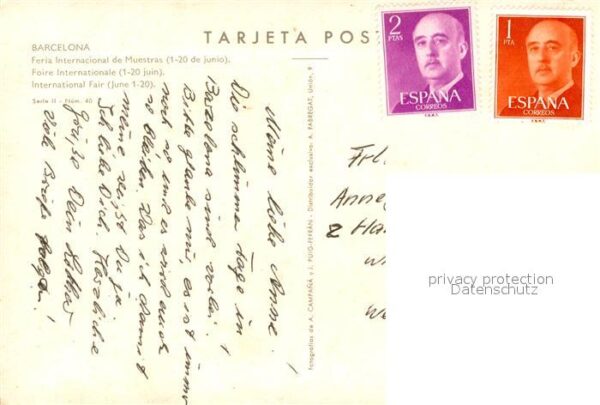 TARJETA POST
BARCELONA
Feria Internacional de Muestras (1-20 de junio).
Foire Internationale (1-20 juin).
International Fair (June 1-20).
Serie II - Núm. 40
2
PTAS
ESPAÑA
CORREOS
1
PTA
ESPAÑA
CORREOS
Meine liebe Anne!
Die schlimmen Tage in
Barcelona sind vorbei!
Bitte glaube mir, es ist immer
noch so und es wird auch
so bleiben. Das ich damit
meine weißt Du ja.
Ich liebe Dich. Herzliche
Grüße Dein Lothar
Viele Grüße
Fotografías de A. CAMPAÑA y J. PUIG-FERRÁN - Distribuidor exclusivo: A. FABREGAT, Unión, 9
Frl.
Anne
2 Ha
privacy protection
Datenschutz